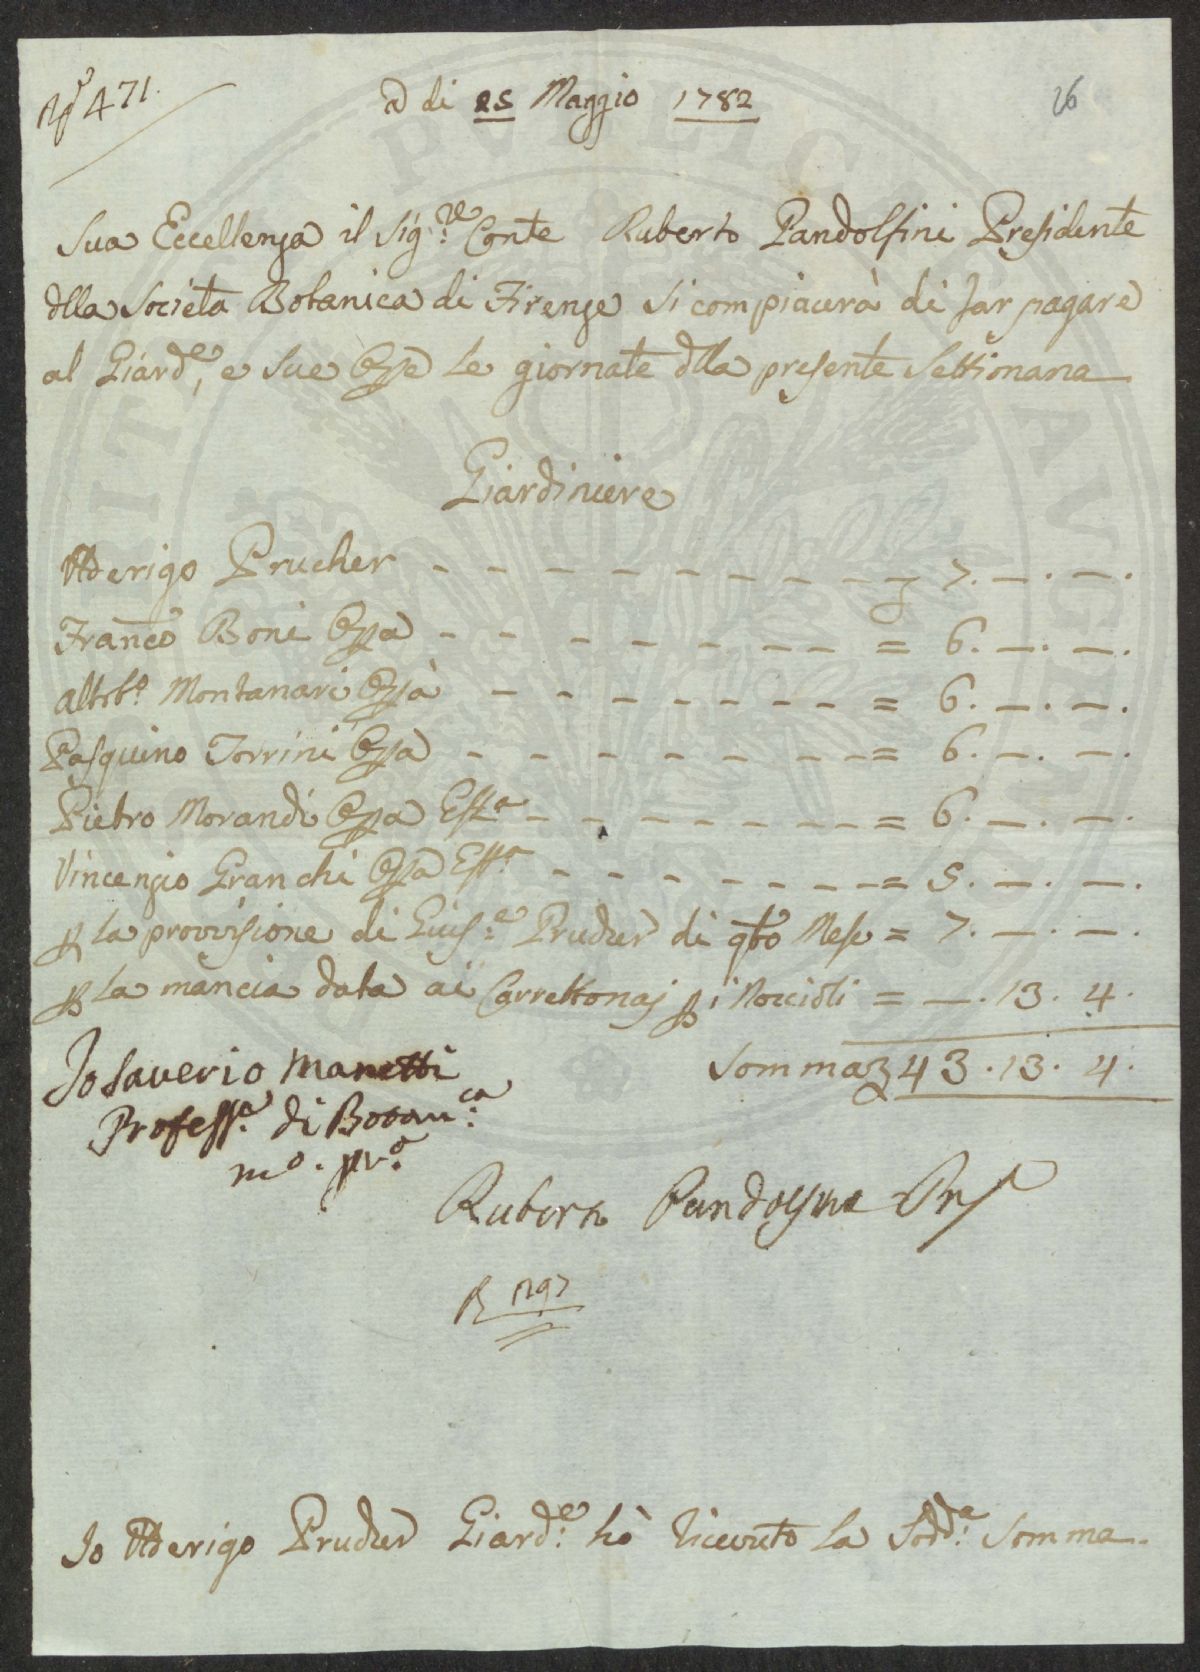 N.º 471.
A dì 25 Maggio 1782
26
Sua Eccellenza il Sig.re Conte Ruberto Pandolfini Presidente
dlla Società Botanica di Firenze si compiacerà di far pagare
al Giard.e, e sue Opre le giornate dlla presente Settimana
Giardiniere
Aderigo Prucher - - - - - - - - - - 7. —. —.
Franco Boni Opra - - - - - - - = 6. —. —.
Altob.o Montanari Opra - - - - - - - = 6. —. —.
Pasquino Torrini Opra - - - - - - - = 6. —. —.
Pietro Morandi Opra Ess.a - - - - - - - = 6. —. —.
Vincenzio Granchi Opra Ess.a - - - - - - - = 5. —. —.
p la provvisione di Gius.e Prucher di qto Mese = 7. —. —.
p la mancia data ai Carrettonaj p i Noccioli = —. 13. 4.
Somma 43. 13. 4.
Io Saverio Manetti
Profess.e di Botan.ca
mo. ppr.o
Ruberto Pandolfini Pres
PUBLICAE
Io Aderigo Prucher Giard.e hò ricevuto la Sod.a Somma.